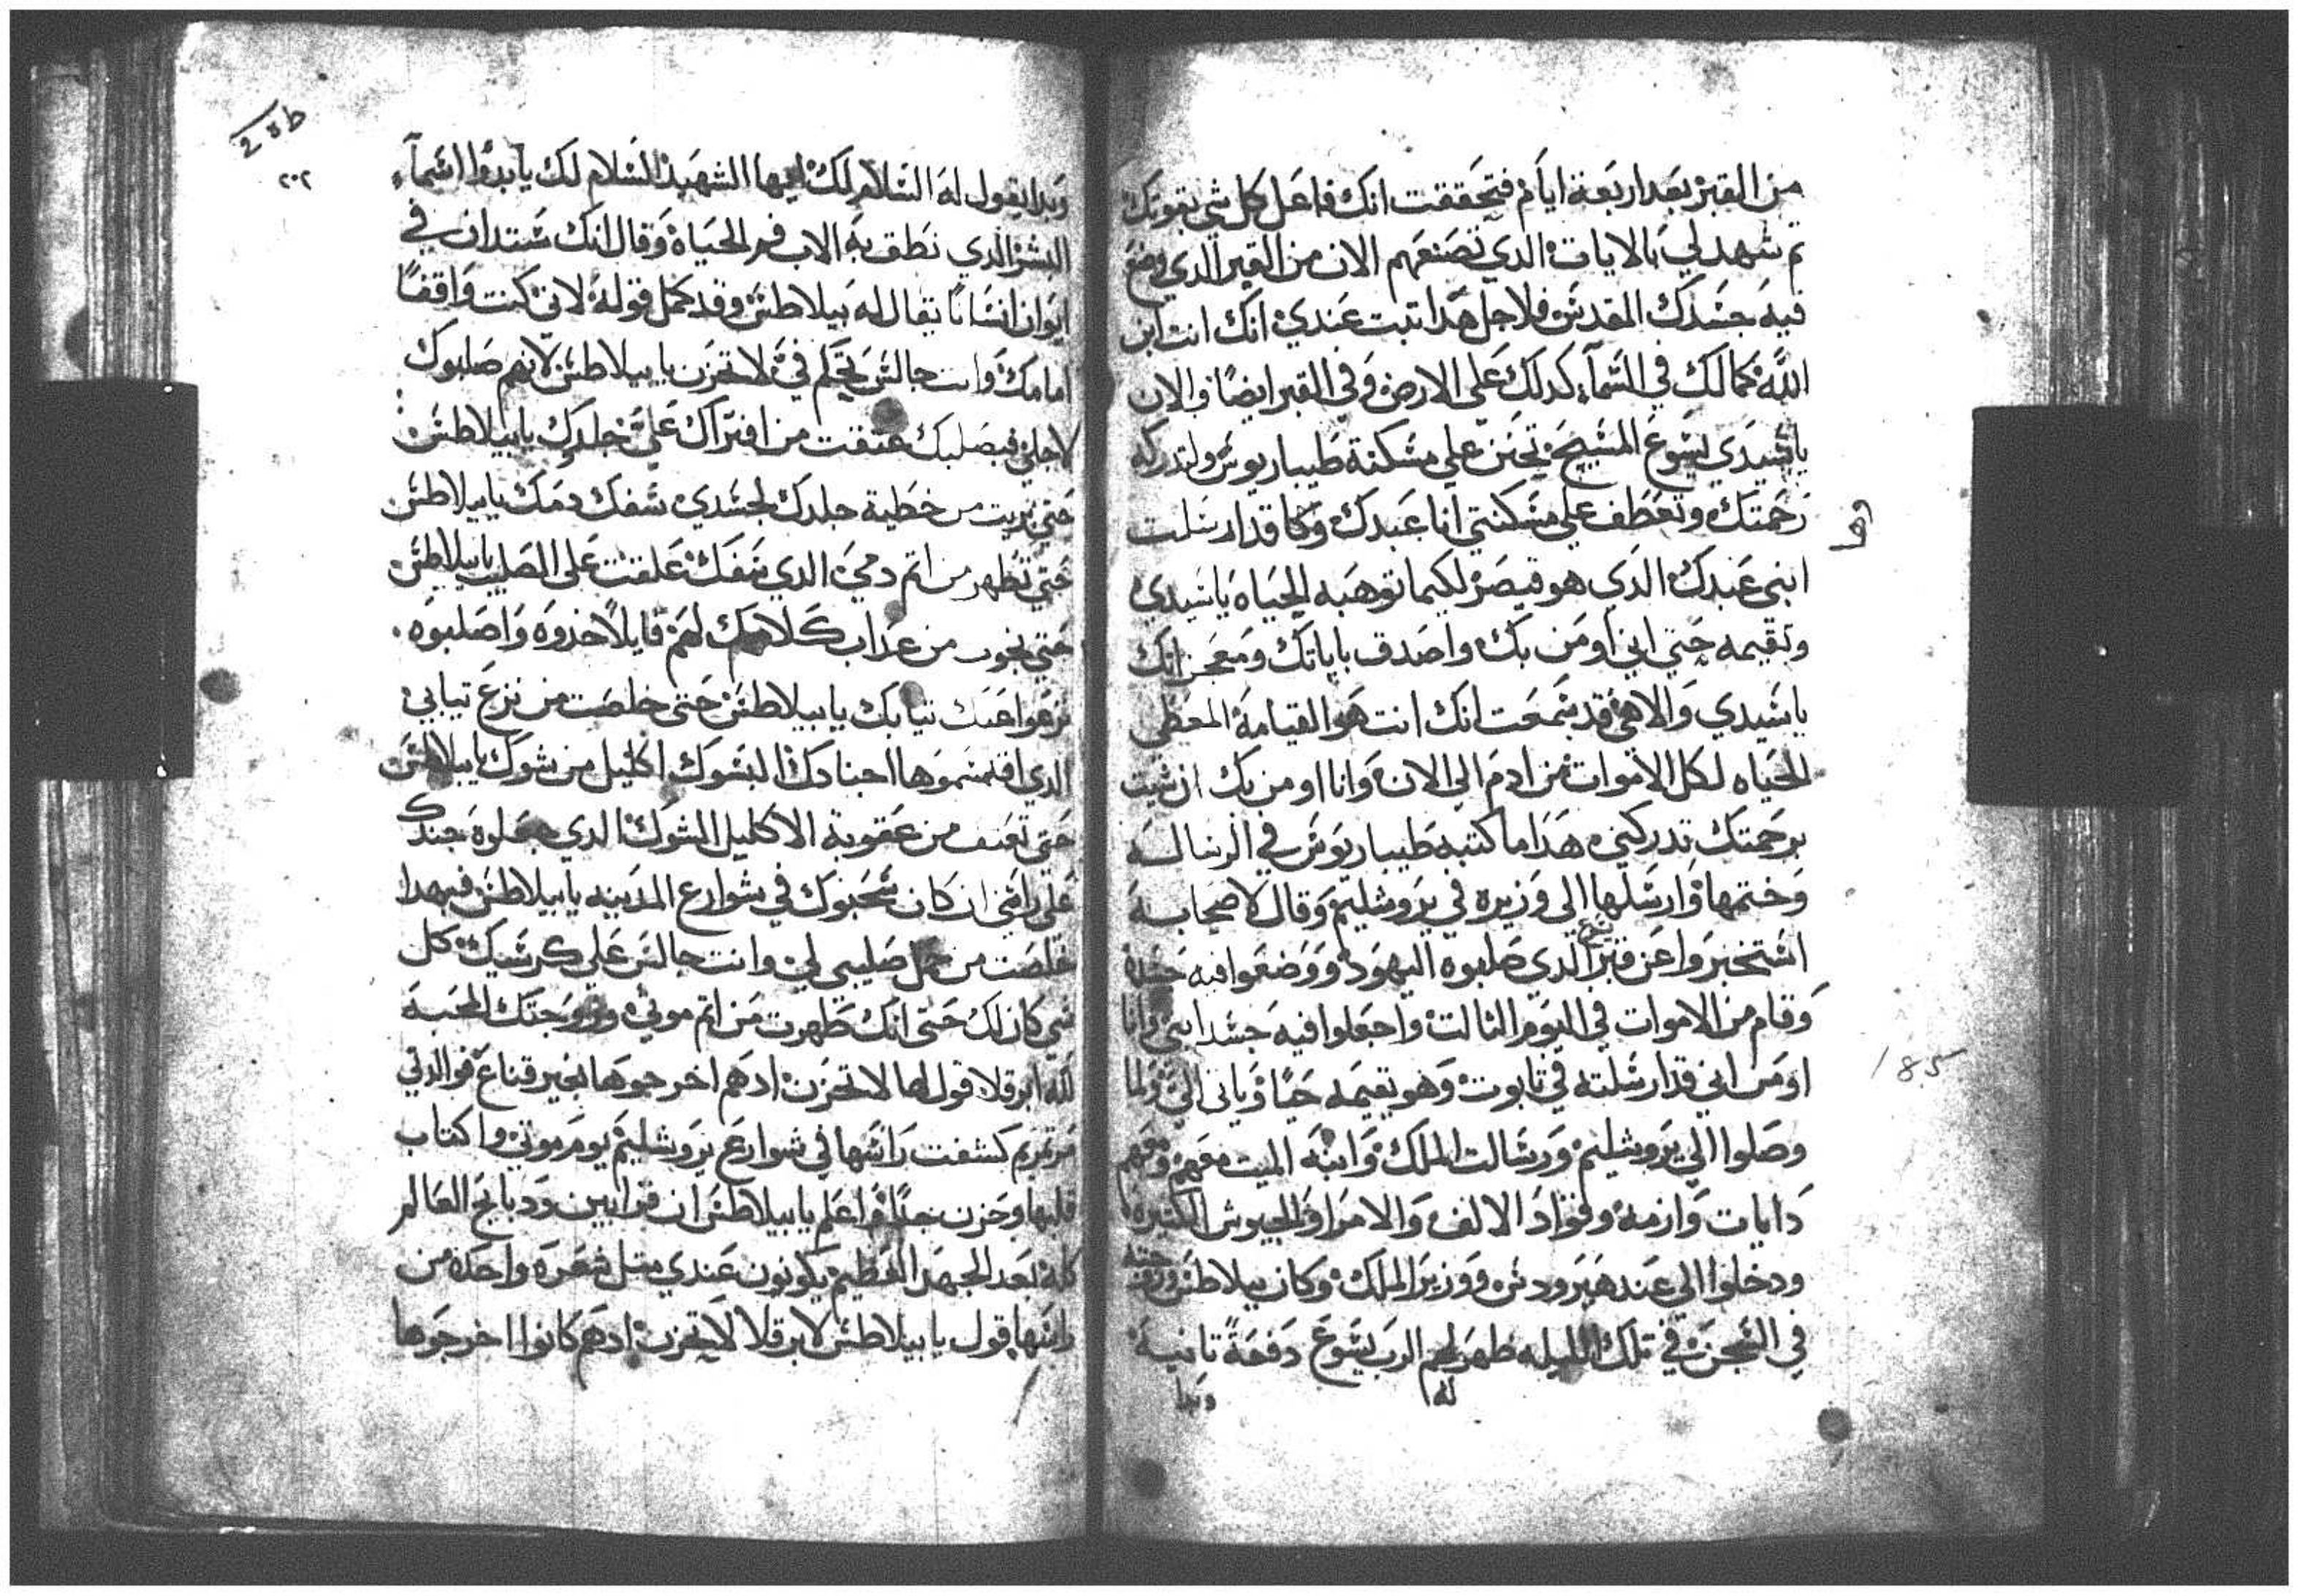 من القبر بعد اربعة ايام فتحققت انك فاعل كل شي بقوتك
تم شهد لي بالايات الدي تصنعهم الان من القبر الدي وضع
فيه جسدك المقدس فلاجل هدا تبت عندي انك انت ابن
الله كمالك في السماء كدلك على الارض وفي القبر ايضا والان
ياسيدي يسوع المسيح تحنن على مسكنة طيباريوس ولتدركه
رحمتك وتعطف على مسكنتي انا عبدك وكا قد ارسلت
ابنى عبدك الدي هو قيصر لكيما توهبه الحياه ياسيدي
وتقيمه حتي اني اومن بك واصدق باياتك ومعجزاتك
ياسيدي والاهي قد سمعت انك انت هو القيامة المعطي
الحياه لكل الاموات من ادم الي الان وانا اومن بك ان شيت
برحمتك تدركني هدا ما كتبه طيباريوس في الرساله
وختمها وارسلها الي وزيره في يروشليم وقال لاصحابه
استخبروا عن قبر الدي صلبوه اليهود ووضعوا فيه جسده
وقام من الاموات في اليوم الثالت واجعلوا فيه جسد ابني وانا
اومن اني قد ارسلته في تابوت وهو يقيمه حيا وياتى الي ولما
وصلوا الي يروشليم ورسالت الملك وابنه الميت معهم ومعهم
دايات وازمة وقواد الالف والامرا والجيوش الكتيره
ودخلوا الي عند هيرودس ووزير الملك وكان بيلاطس وزوجته
في السجن في تلك الليله ظهر لهم الرب يسوع دفعة تانية
له وبدا
185
25b
٢٠٢
وبدا يقول له السلام لك ايها الشهيد السلام لك يابدوا السماء
البشر الدي نطق به الاب فم الحياة وقال انك ستدان في
ايوان انسانا يقال له بيلاطس وقد كمل قوله لاني كنت واقفا
امامك وانت جالس تحكم في لا تحزن يا بيلاطس لانهم صلبوك
لاجلي فبصلبك عتقت من افتراك علي جلدك يا بيلاطس
حتي بريت من خطية جلدك لجسدي سفك دمك يا بيلاطس
حتي تطهر من اتم دمي الدي سفك علقت على الصليب يا بيلاطس
حتي تجوب من عداب كلامك لهم قايلا خدوه واصلبوه
نزعوا عنك تيابك يا بيلاطس حتى خلصت من نزع تيابي
الدي اقتسموها اجنادك البسوك اكليل من شوك يا بيلاطس
حتي تعتق من عقوبة الاكليل الشوك الدي جعلوه جندك
على راسى ان كان سحبوك في شوارع المدينه يا بيلاطس فبهدا
خلصت من حمل صليبي لي وانت جالس علي كرسيك كل
شي كان لك حتى انك طهرت من اتم موتي وزوجتك المحبه
لله ابرقلا قول لها لا تحزن ادهم اخرجوها بغير قناع فوالدتي
مرتمريم كشفت راسها في شوارع يروشليم يوم موتي واكتاب
قلبها وحزن جدا واعلم يا بيلاطس ان قرابين ودبايح العالم
كله بعد الجبهر العظيم يكونون عندي متل شعره واحده من
راسها قول يا بيلاطس لابرقلا لا تحزن ادهم كانوا اخرجوها